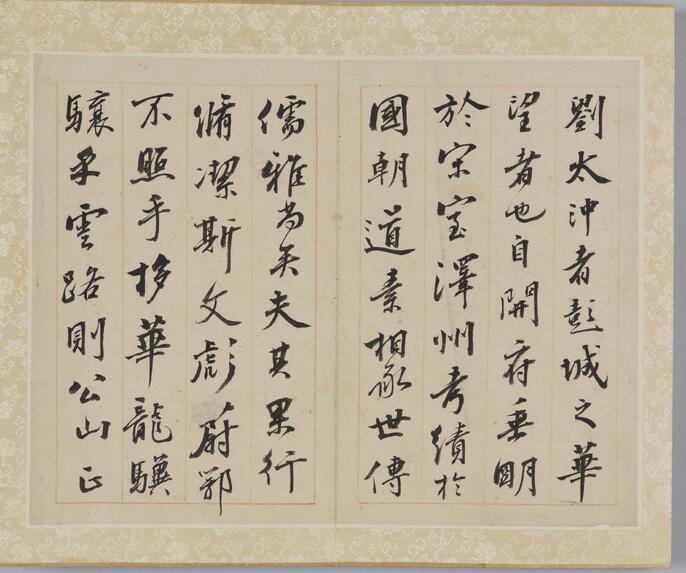 劉太沖者彭城之華
望者也自開府垂明
於宋室澤州考績於
國朝道素相承世傳
儒雅尚矣夫其果行
脩潔斯文彪蔚鄂
不照乎栘華龍驥
驤乎雲路則公山正